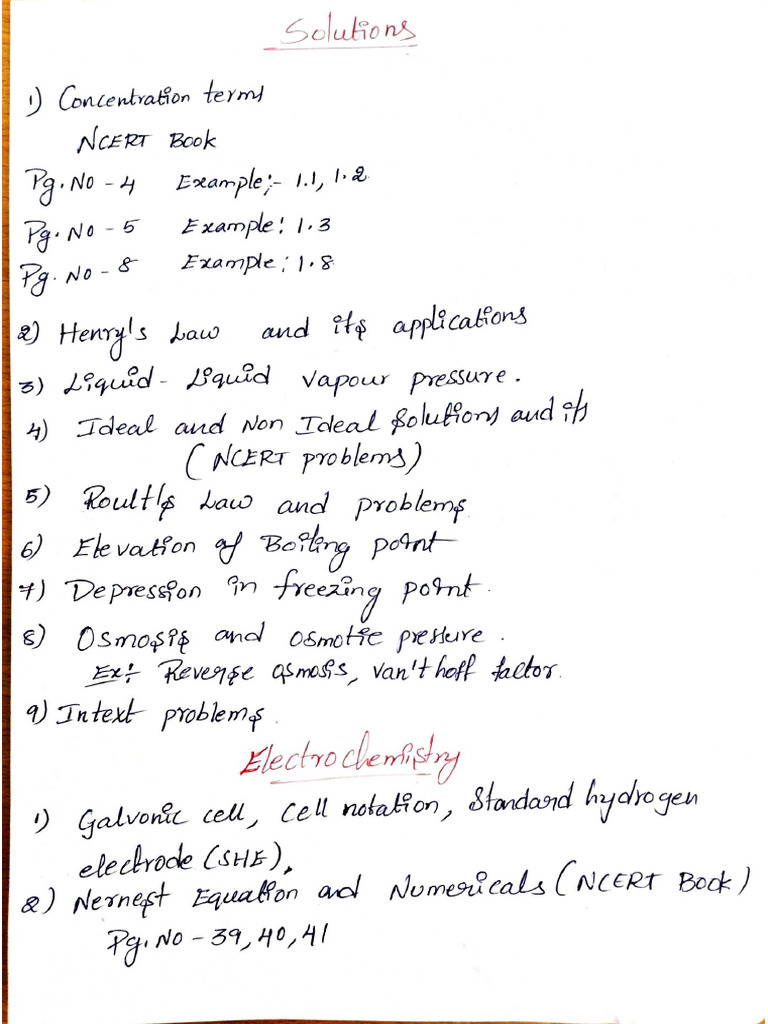 Solutions
1) Concentration terms
NCERT Book
Pg.No - 4 Example:- 1.1, 1.2
Pg.No - 5 Example: 1.3
Pg.No - 8 Example: 1.8
2) Henry's Law and its applications
3) Liquid - Liquid vapour pressure.
4) Ideal and Non Ideal Solutions and its
(NCERT problems)
5) Roult's Law and problems
6) Elevation of Boiling point
7) Depression in freezing point.
8) Osmosis and osmotic pressure.
Ex:- Reverse osmosis, van't hoff factor.
9) Intext problems.
Electrochemistry
1) Galvonic cell, Cell notation, Standard hydrogen
electrode (SHE).
2) Nernest Equation and Numericals (NCERT Book)
Pg.No - 39, 40, 41